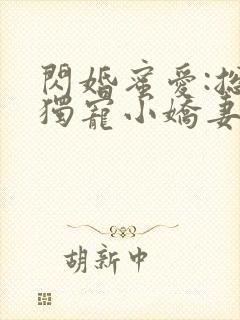 閃婚蜜愛:
獨寵小嬌妻
胡新中